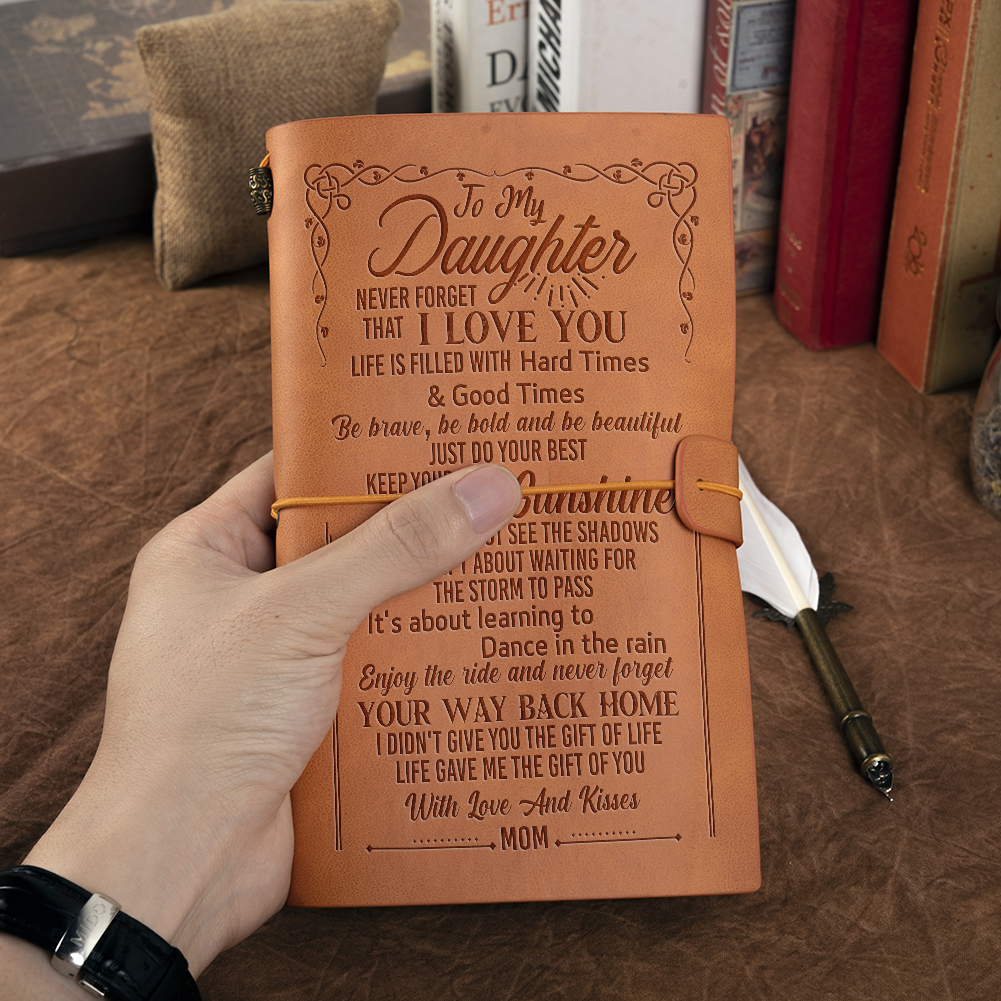 To My
Daughter
NEVER FORGET
THAT I LOVE YOU
LIFE IS FILLED WITH Hard Times
& Good Times
Be brave, be bold and be beautiful
JUST DO YOUR BEST
KEEP Sunshine
SEE THE SHADOWS
ABOUT WAITING FOR
THE STORM TO PASS
It's about learning to
Dance in the rain
Enjoy the ride and never forget
YOUR WAY BACK HOME
I DIDN'T GIVE YOU THE GIFT OF LIFE
LIFE GAVE ME THE GIFT OF YOU
With Love And Kisses
MOM
MIDO